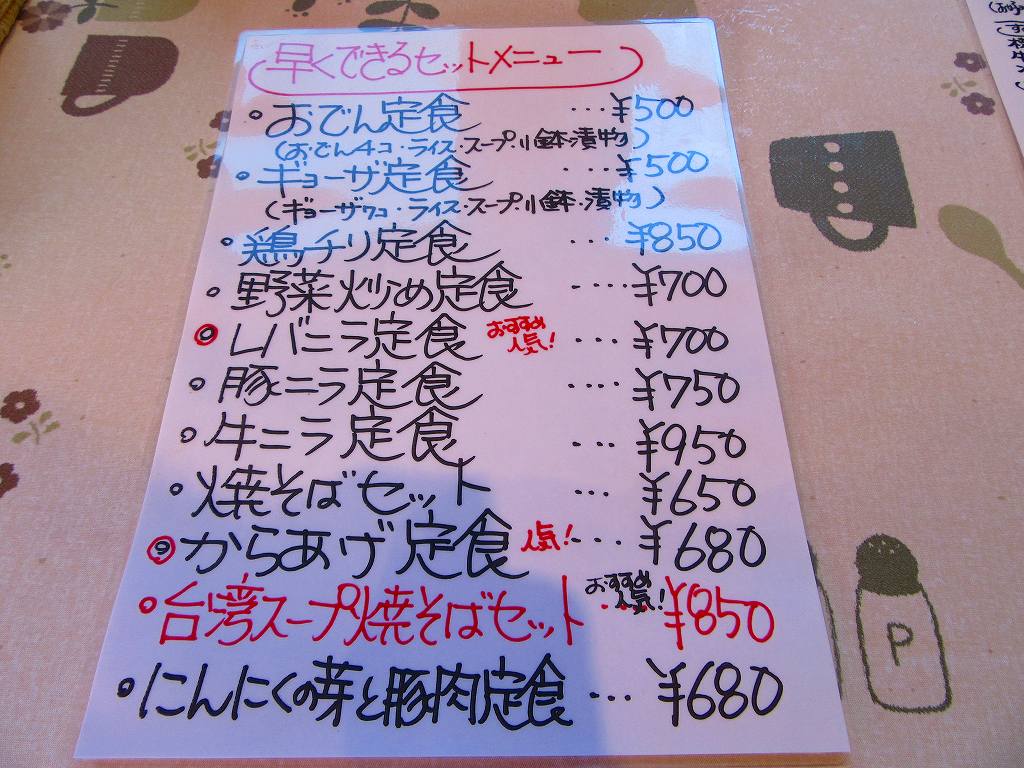 早くできるセットメニュー
・おでん定食 … ¥500
(おでん4コ・ライス・スープ・小鉢・漬物)
・ギョーザ定食 … ¥500
(ギョーザ7コ・ライス・スープ・小鉢・漬物)
・鶏チリ定食 … ¥850
・野菜炒め定食 … ¥700
◎レバニラ定食 おすすめ人気! … ¥700
・豚ニラ定食 … ¥750
・牛ニラ定食 … ¥950
・焼そばセット … ¥650
◎からあげ定食 人気! … ¥680
・台湾スープ焼そばセット おすすめ人気! … ¥850
・にんにくの芽と豚肉定食 … ¥680
P